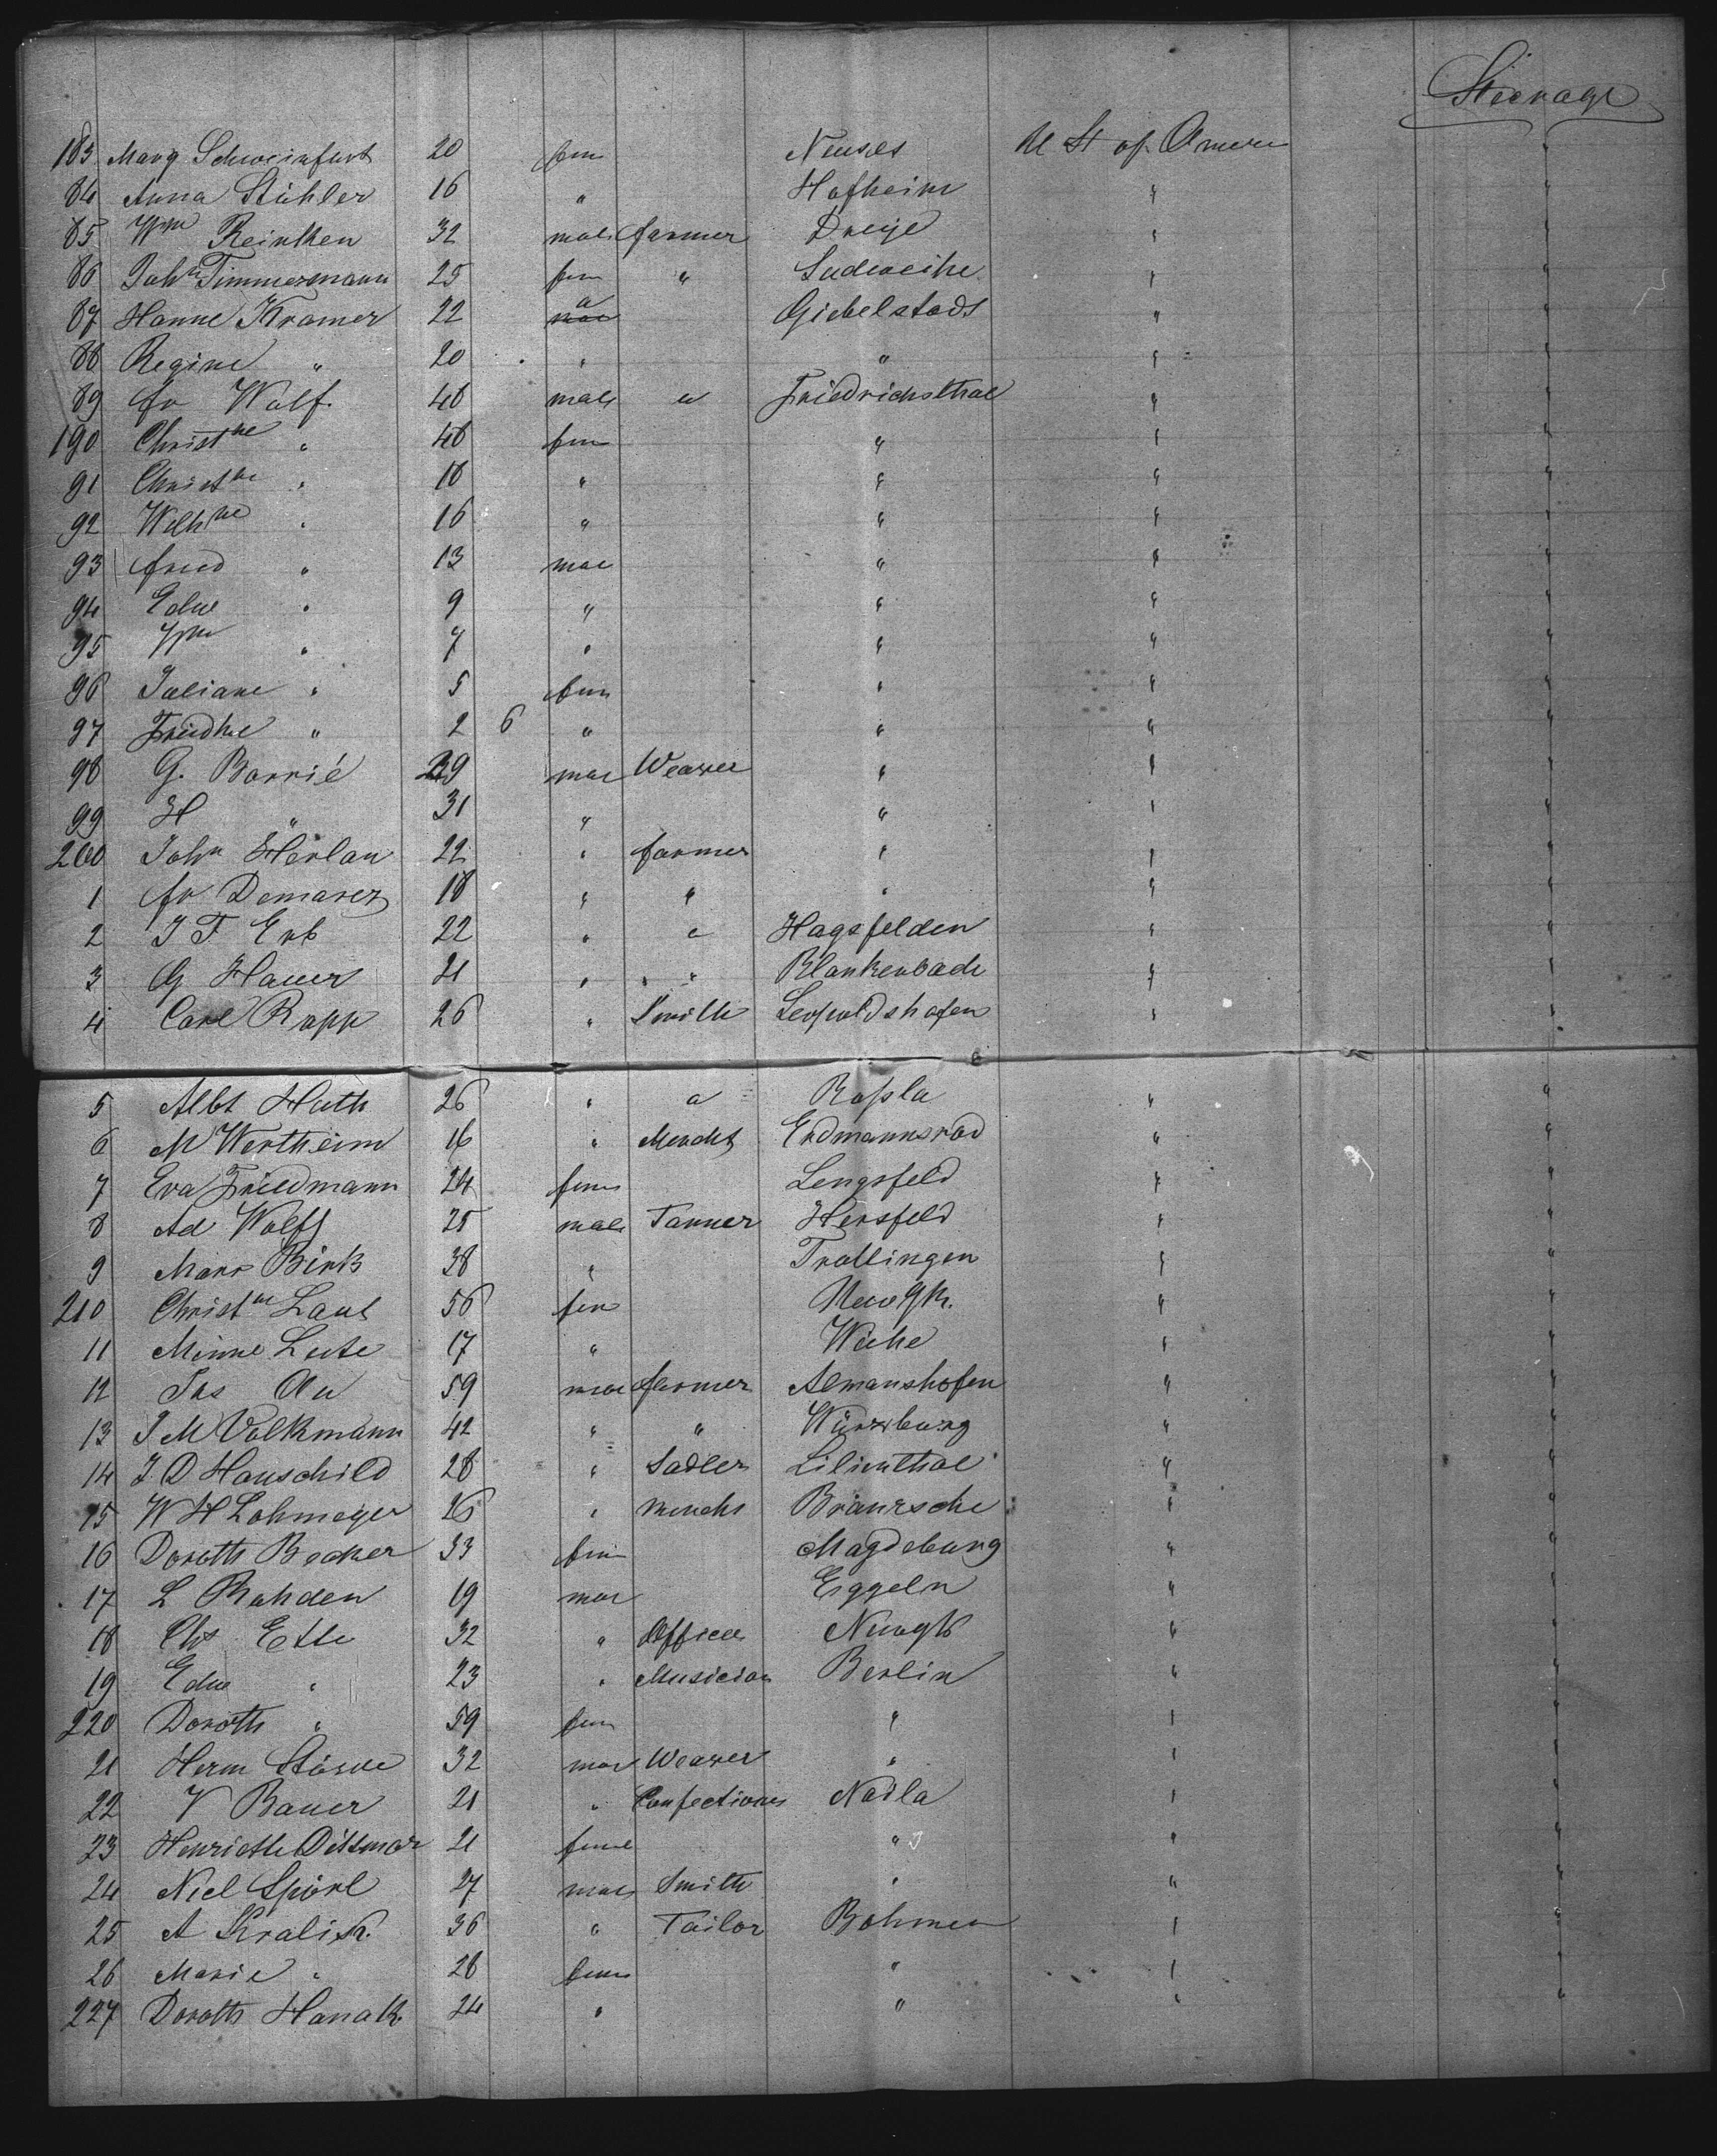 Steerage
183 Marg Schweinfurt 20 fem Neuses U St of Americ
84 Anna Stühler 16 " Hofheim "
85 Wm Reinken 32 male farmer Dreye " "
86 Joh. Timmermann 25 fem " Sudweihe " "
87 Hanne Kramer 22 " Giebelstadt " "
88 Regine " 20 " " " "
89 fr Wolf. 48 male " Friedrichsthal " "
190 Christne " 48 fem " " "
91 Christne " 18 " " " "
92 Wilhne " 16 " " " "
93 fried " 13 mal " " "
94 Edw " 9 " " " "
95 Wm " 7 " " " "
96 Juliane " 5 fem " " "
97 Friedke " 2 6 " " " "
98 G. Barrié 29 mal Weaver " " "
99 H " 31 " " " "
200 John Herlan 22 " farmer " " "
1 fr Demarez 18 " " " " "
2 J F Erb 22 " " Hagsfelden " "
3 G Hauer 21 " " Blankenbach " "
4 Carl Rapp 26 " Smith Leopoldshafen " "
5 Albt Huth 26 " " Rosla " "
6 M Wertheim 16 " Mercht Erdmannsrod " "
7 Eva Friedmann 24 fem Lengsfeld " "
8 Ad Wolff 25 male Tanner Hersfeld " "
9 Marx Birk 38 " Trollingen " "
210 Christne Laub 56 fem New Yk. " "
11 Minne Leute 17 " Wiehe " "
12 Jas Au 59 mal farmer Almanshofen " "
13 J M Volkmann 42 " " Würzburg " "
14 J D Hauschild 28 " Sadler Lilienthal " "
15 W H Lohmeyer 26 " Mercht Bramsche " "
16 Doroth Becker 33 fem Magdeburg " "
17 L Rahden 19 mal Eggeln " "
18 Chs Ette 32 " Officer New Yk " "
19 Edw " 23 " Musician Berlin " "
220 Doroth " 59 fem " " "
21 Herm Stüwe 32 mal Weaver " " "
22 V Bauer 21 " Confectioner Naila " "
23 Henriette Dittmar 21 feml " " "
24 Nicl Spörl 27 male Smith " " "
25 A Kralik. 36 " Tailor Bohmen " "
26 Marie " 28 fem " " "
227 Doroth Hanak 24 " " " "